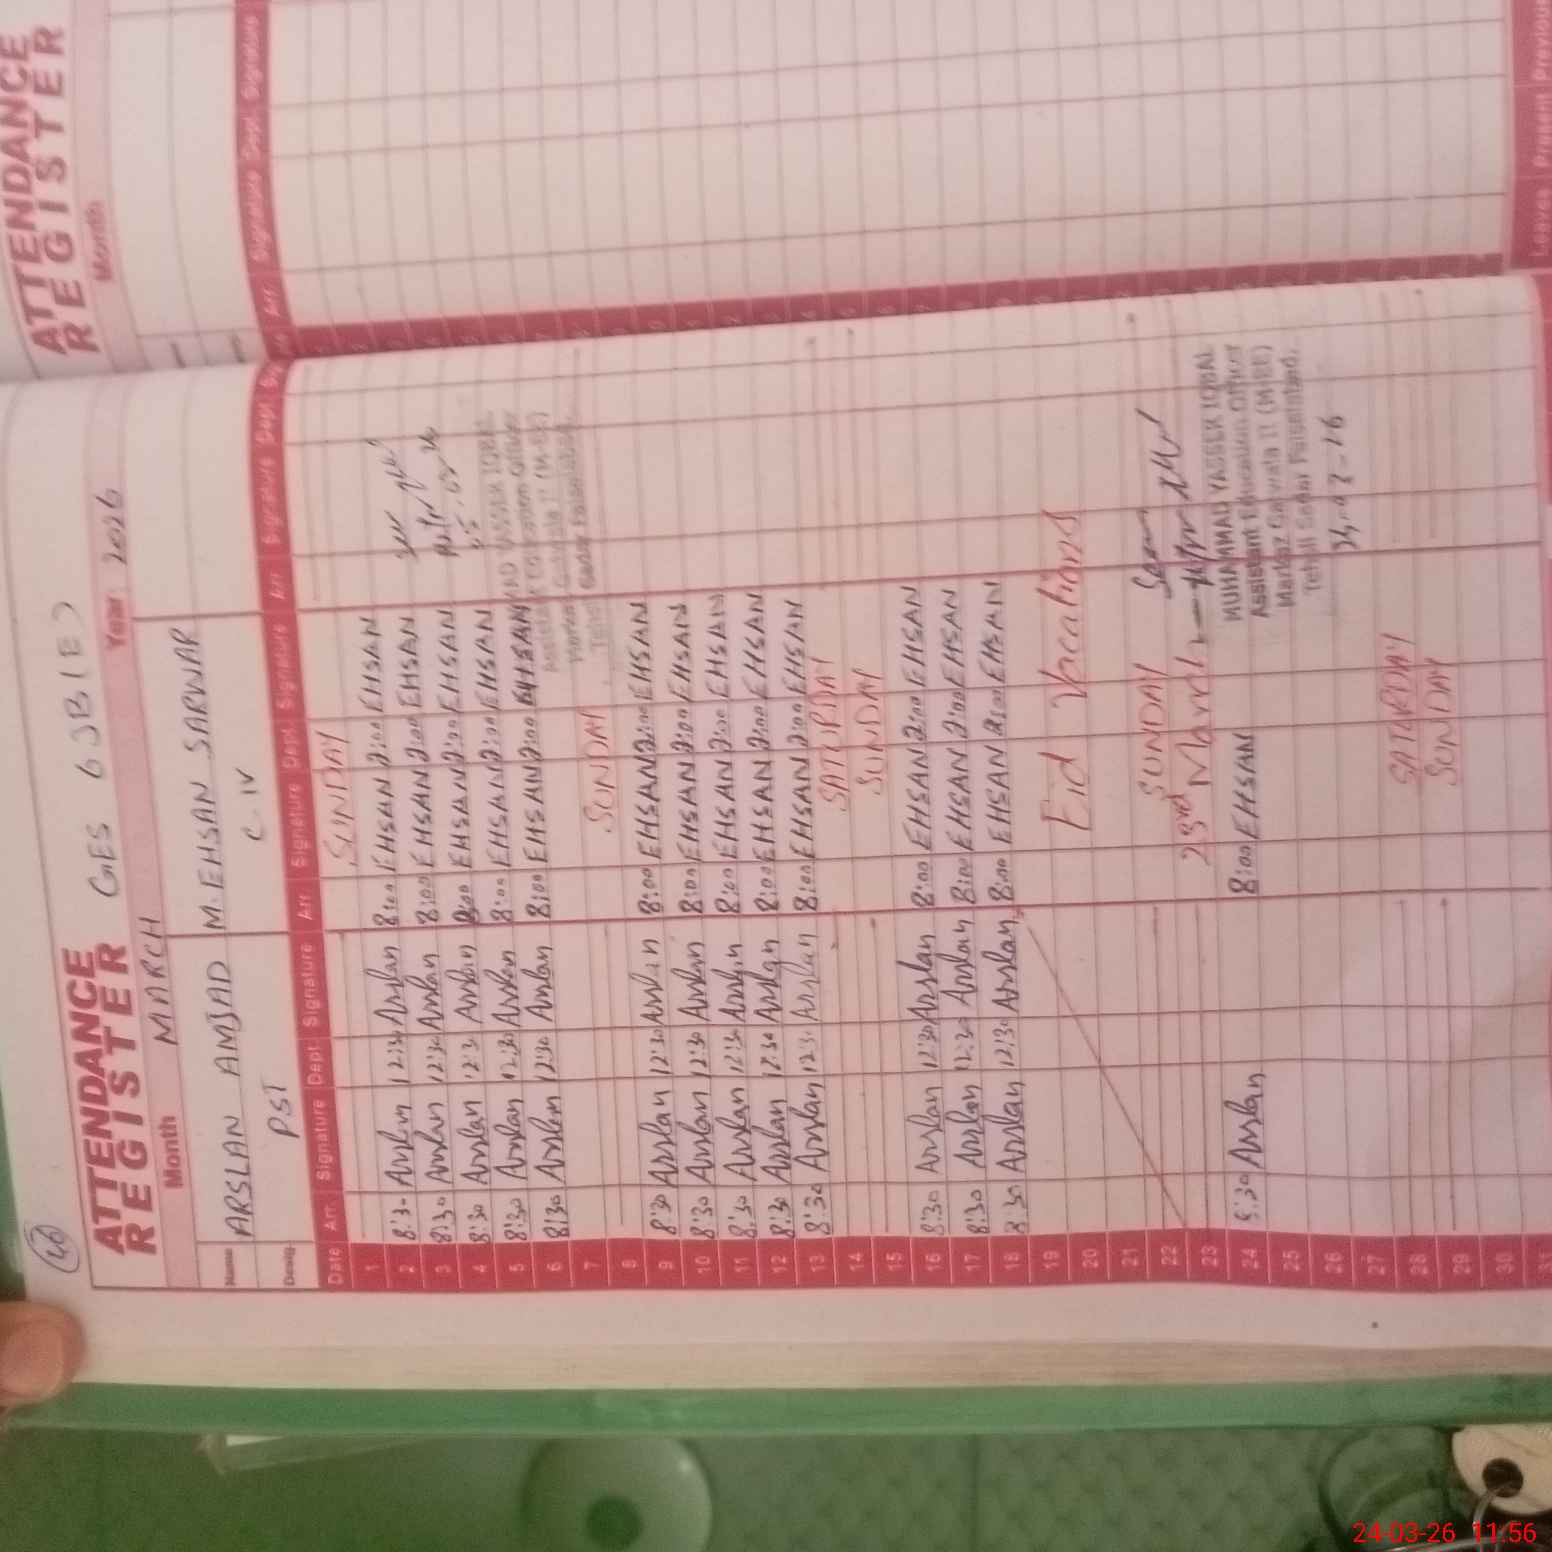 40
ATTENDANCE REGISTER
GES 63B(E)
Month MARCH Year 2026
Name ARSLAN AMJAD M. EHSAN SARWAR
Desig. PST C.IV
Date Arr. Signature Dept. Signature Arr. Signature Dept. Signature Arr. Signature Dept.
1 SUNDAY
2 8:30 Arslan 12:30 Arslan 8:00 EHSAN 2:00 EHSAN
3 8:30 Arslan 12:30 Arslan 8:00 EHSAN 2:00 EHSAN
4 8:30 Arslan 12:30 Arslan 8:00 EHSAN 2:00 EHSAN
5 8:30 Arslan 12:30 Arslan 8:00 EHSAN 2:00 EHSAN
6 8:30 Arslan 12:30 Arslan 8:00 EHSAN 2:00 EHSAN
7
8 SUNDAY
9 8:30 Arslan 12:30 Arslan 8:00 EHSAN 2:00 EHSAN
10 8:30 Arslan 12:30 Arslan 8:00 EHSAN 2:00 EHSAN
11 8:30 Arslan 12:30 Arslan 8:00 EHSAN 2:00 EHSAN
12 8:30 Arslan 12:30 Arslan 8:00 EHSAN 2:00 EHSAN
13 8:30 Arslan 12:30 Arslan 8:00 EHSAN 2:00 EHSAN
14 SATURDAY
15 SUNDAY
16 8:30 Arslan 12:30 Arslan 8:00 EHSAN 2:00 EHSAN
17 8:30 Arslan 12:30 Arslan 8:00 EHSAN 2:00 EHSAN
18 8:30 Arslan 12:30 Arslan 8:00 EHSAN 2:00 EHSAN
19
20 Eid Vacations
21
22 SUNDAY
23 23rd March
24 8:30 Arslan 8:00 EHSAN
25
26
27
28 SATURDAY
29 SUNDAY
30
31
MUHAMMAD YASSER IQBAL
Assistant Education Officer
Markaz Gatwala II (M-EE)
Tehsil Sadar Faisalabad.
24-03-26
ATTENDANCE REGISTER
Month
Arr. Signature Dept. Signature
Leaves Present Previous
24-03-26 11:56